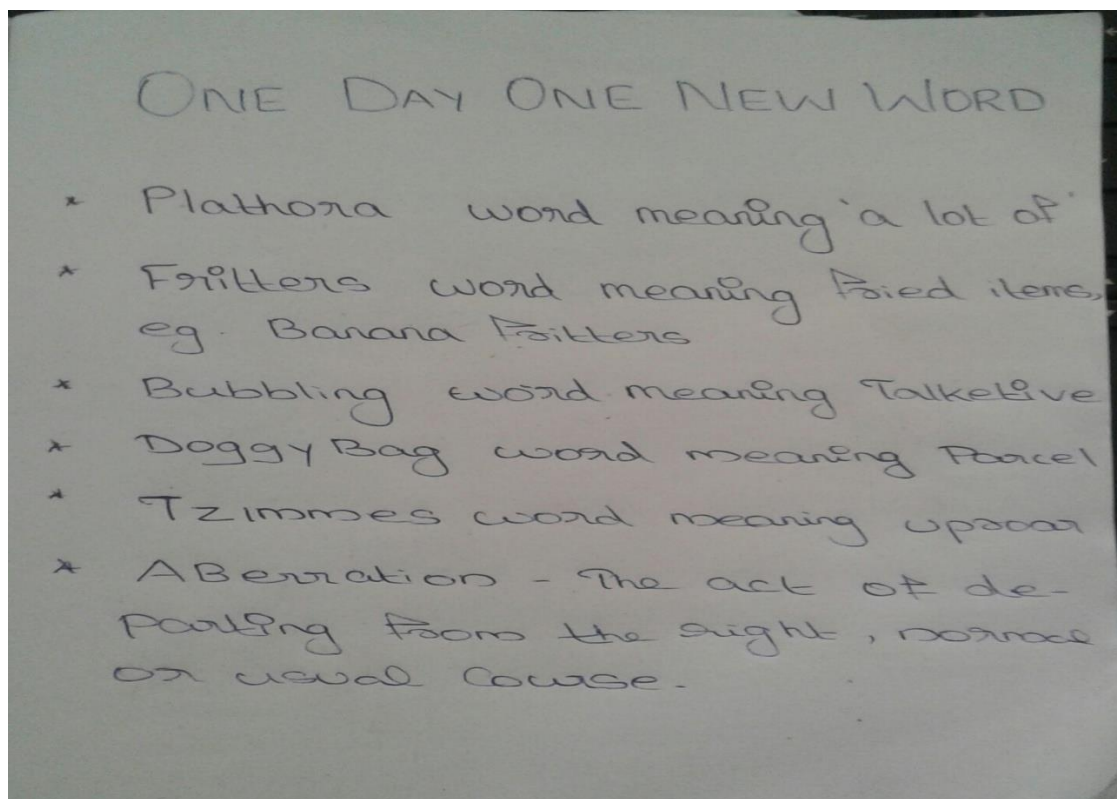 ONE DAY ONE NEW WORD
* Plathora word meaning 'a lot of'
* Fritters word meaning fried items,
eg. Banana Fritters
* Bubbling word meaning Talketive
* Doggy Bag word meaning Parcel
* Tzimmes word meaning uproar
* ABerration - The act of de-
parting from the right, normal
or usual course.